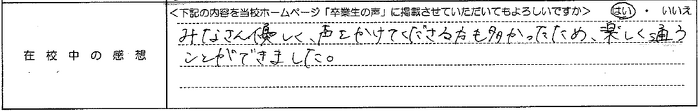 <下記の内容を当校ホームページ「卒業生の声」に掲載させていただいてもよろしいですか> はい ・ いいえ
在校中の感想
みなさん優しく、声をかけてくださる方も多かったため、楽しく通う
ことができました。